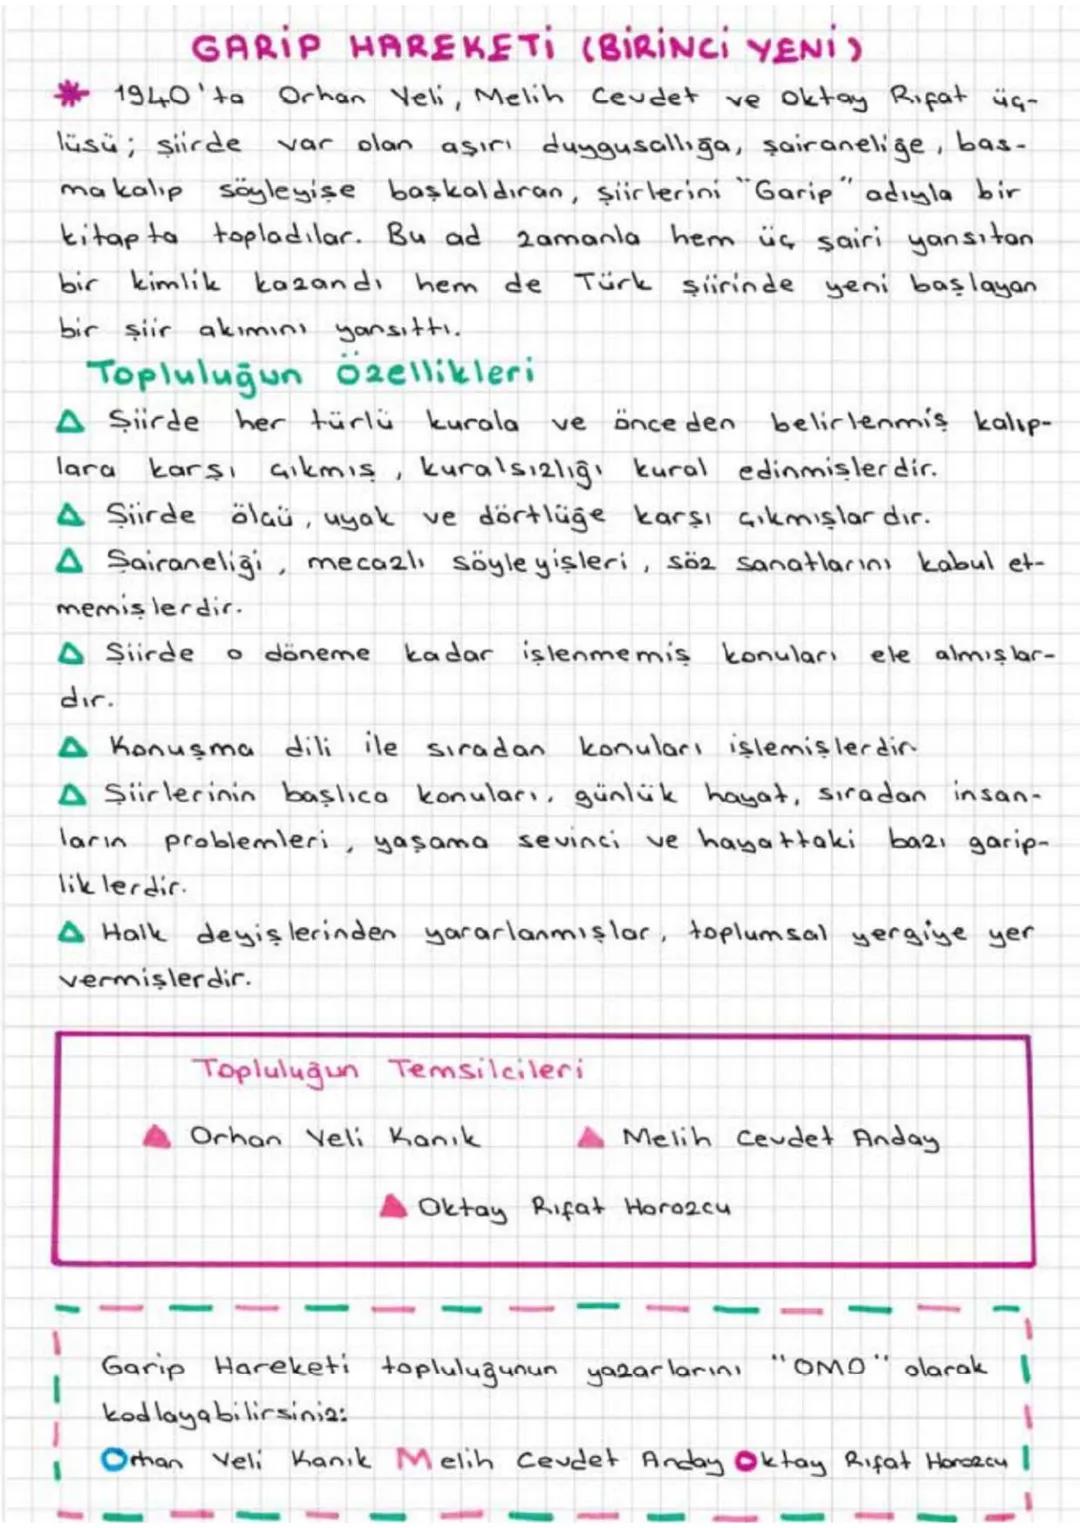 GARİP HAREKETİ (BİRİNCİ YENİ)
* 1940'ta Orhan Veli, Melih Cevdet ve Oktay Rıfat üç-
lüsü; şiirde var olan aşırı duygusallığa, şairaneliğe, bas-
makalıp söyleyişe başkaldıran, şiirlerini "Garip" adıyla bir
kitapta topladılar. Bu ad zamanla hem üç şairi yansıtan
bir kimlik kazandı hem de Türk şiirinde yeni başlayan
bir şiir akımını yansıttı.
Topluluğun Özellikleri
Δ Şiirde her türlü kurala ve önceden belirlenmiş kalıp-
lara karşı çıkmış, kuralsızlığı kural edinmişlerdir.
Δ Şiirde ölçü, uyak ve dörtlüğe karşı çıkmışlardır.
Δ Şairaneliği, mecazlı söyleyişleri, söz sanatlarını kabul et-
memişlerdir.
Δ Şiirde o döneme kadar işlenmemiş konuları ele almışlar-
dır.
Δ Konuşma dili ile sıradan konuları işlemişlerdir.
Δ Şiirlerinin başlıca konuları, günlük hayat, sıradan insan-
ların problemleri, yaşama sevinci ve hayattaki bazı garip-
liklerdir.
Δ Halk deyişlerinden yararlanmışlar, toplumsal yergiye yer
vermişlerdir.
Topluluğun Temsilcileri
▲ Orhan Veli Kanık ▲ Melih Cevdet Anday
▲ Oktay Rıfat Horozcu
Garip Hareketi topluluğunun yazarlarını "OMO" olarak
kodlayabilirsiniz:
Orhan Veli Kanık Melih Cevdet Anday Oktay Rıfat Horozcu